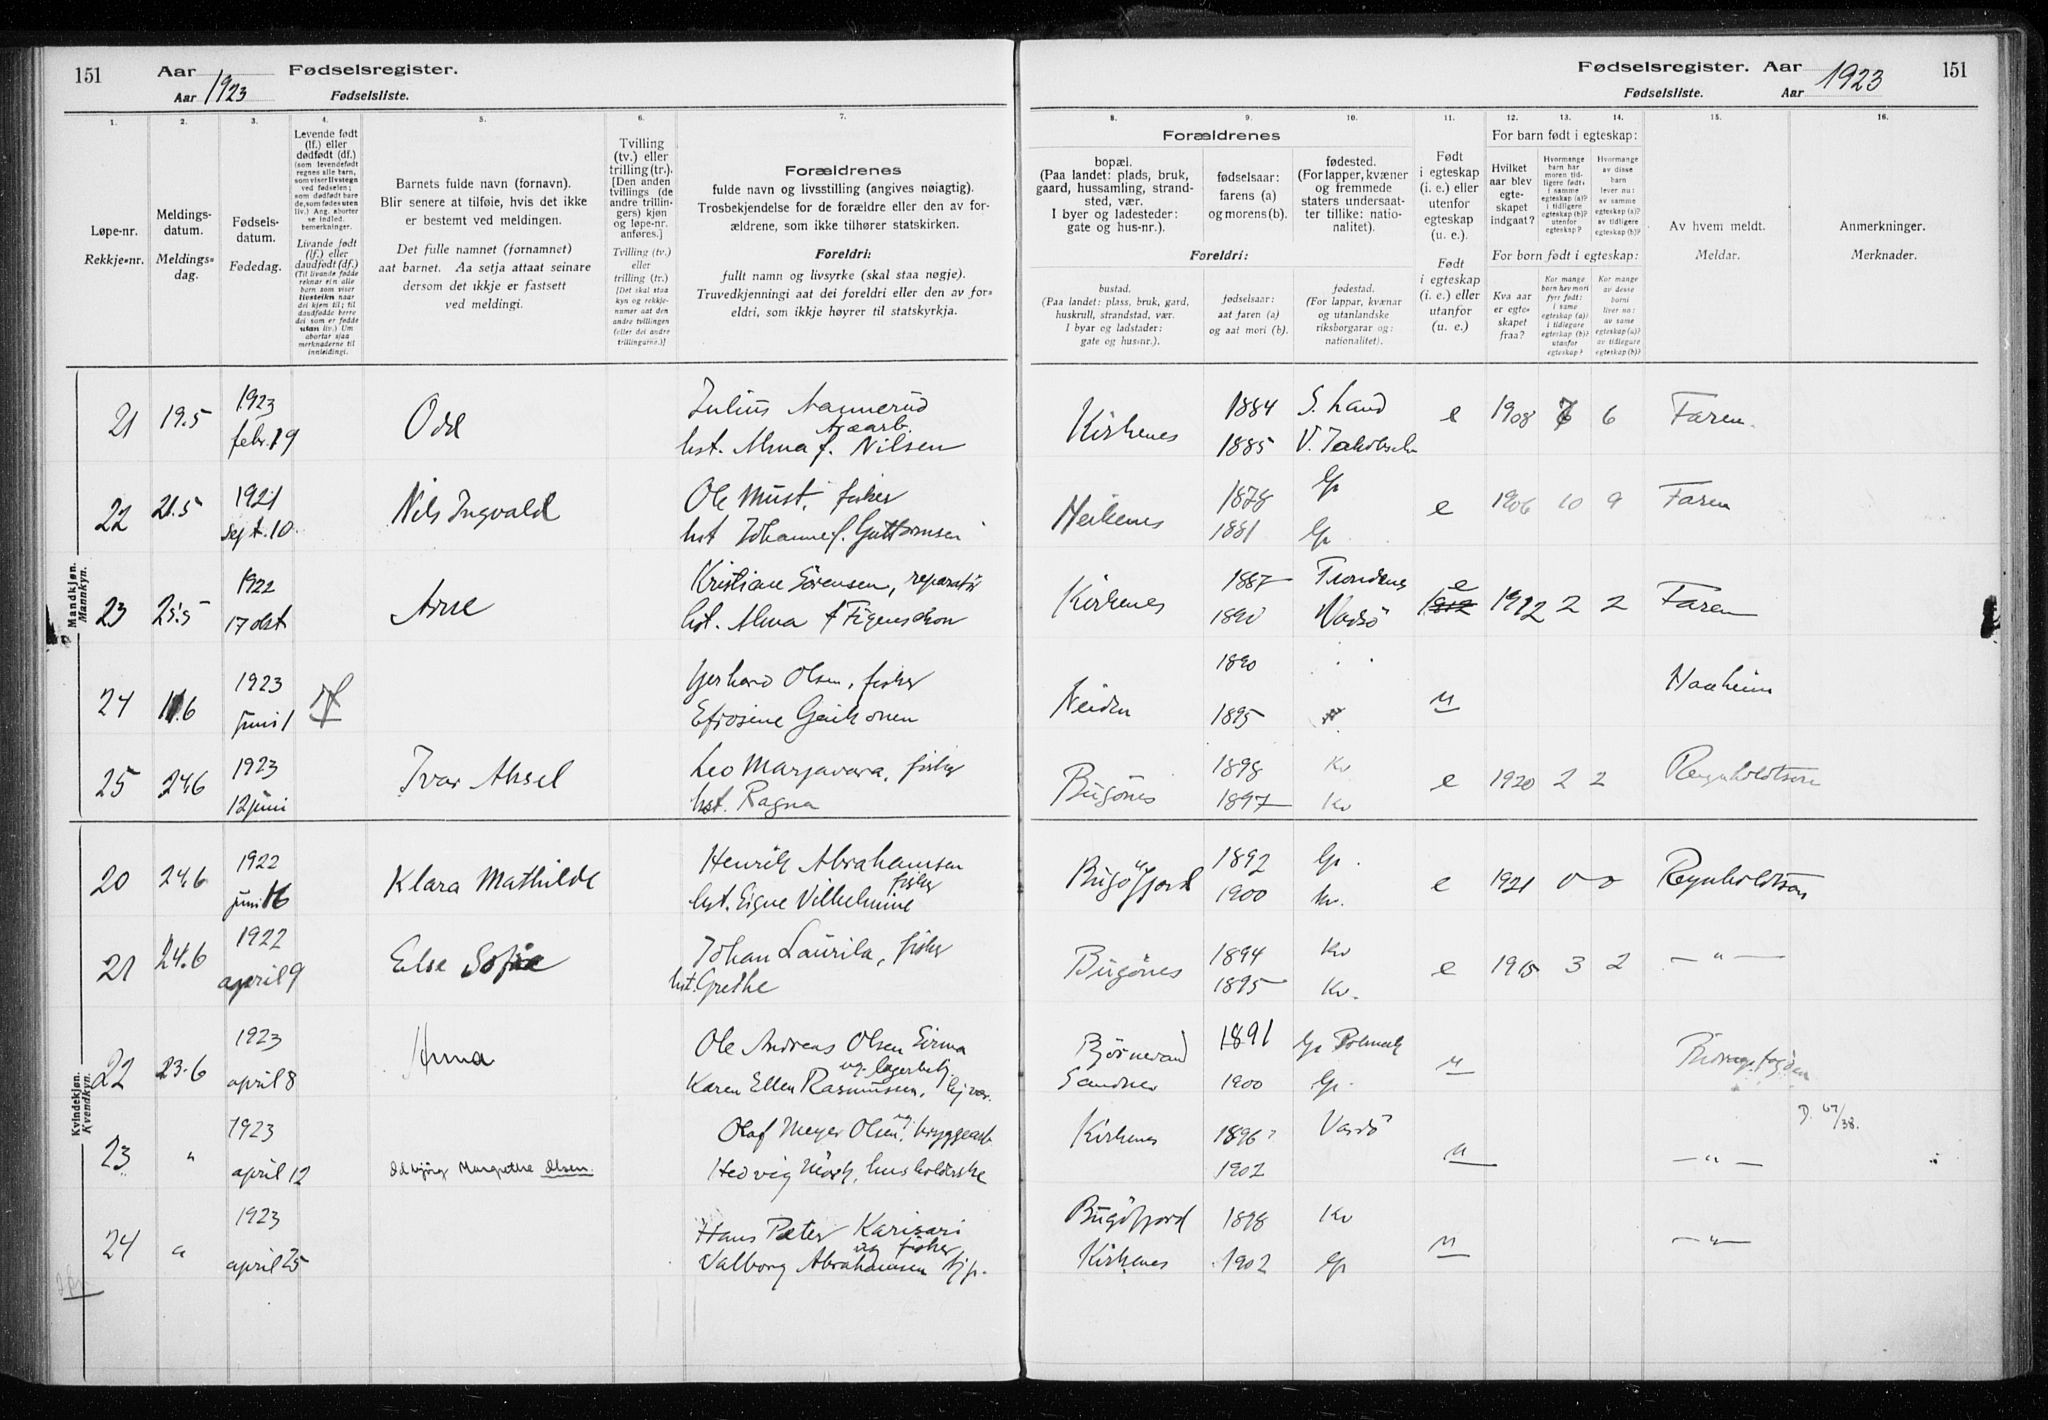 151 Aar 1923 Fødselsregister.
Aar Fødselsliste.
Fødselsregister. Aar 1923 151
Fødselsliste. Aar
1. 2. 3. 4. 5. 6. 7.
Løpe-nr.
Rekkje-nr.
Meldings-
datum.
Meldings-
dag.
Fødsels-
datum.
Fødedag.
Levende født
(lf.) eller
dødfødt (df.)
(som levendefødt
regnes alle barn,
som viser livstegn
ved fødselen;
som dødfødt bare
de, som fødes uten
liv.) Ang. aborter
se indled.
bemerkninger.
Livande født
(lf.) eller
daudfødt (df.)
(Til livande fødde
reknar ein alle
born som viser
livsteikn naar
dei kjem til; til
daudfødde berre
dei som er fødde
utan liv.) Um
abortar sjaa
merknaderne til
innleidingi.
Barnets fulde navn (fornavn).
Blir senere at tilføie, hvis det ikke
er bestemt ved meldingen.
Det fulle namnet (fornamnet)
aat barnet. Aa setja attaat seinare
dersom det ikkje er fastsett
ved meldingi.
Tvilling
(tv.) eller
trilling (tr.).
[Den anden
tvillings (de
andre trillin-
gers) kjøn
og løpe-nr.
anføres.]
Tvilling (tv.)
eller
trilling (tr.)
[Det skal staa
kyn og rekkje-
numer aat den
andre tvillingen
(eller dei andre
trillingarne.)]
Forældrenes
fulde navn og livsstilling (angives nøiagtig).
Trosbekjendelse for de forældre eller den av for-
ældrene, som ikke tilhører statskirken.
Foreldri:
fullt namn og livsyrke (skal staa nøgje).
Truvedkjenningi aat dei foreldri eller den av for-
eldri, som ikkje høyrer til statskyrkja.
8. 9. 10. 11. 12. 13. 14. 15. 16.
Forældrenes
bopæl.
(Paa landet: plads, bruk,
gaard, hussamling, strand-
sted, vær.
I byer og ladesteder:
gate og hus-nr.).
fødselsaar:
farens (a)
og morens (b).
fødested.
(For lapper, kvæner
og fremmede
staters undersaat-
ter tillike: natio-
nalitet).
Foreldri:
bustad.
(Paa landet: plass, bruk, gard,
huskrull, strandstad, vær.
I byar og ladstader:
gate og hus-nr.).
fødselsaar:
aat faren (a)
og aat mori (b).
fødestad.
(For lappar, kvænar
og utanlandske
riksborgarar og:
nationalitet).
Født
i egteskap
(i. e.) eller
utenfor
egteskap
(u. e.).
Født
i egteskap
(i. e.) eller
utanfor
(u. e.)
For barn født i egteskap:
Hvilket
aar blev
egte-
skapet
indgaat?
Hvormange
barn har
moren tid-
ligere født:
i samme
egteskap (a)?
i tidligere
egteskap (b)?
utenfor
egteskap?
Hvormange
av disse
barn
lever nu:
av samme
egteskap (a)?
av tidligere
egteskap (b)?
For born født i egteskap:
Kva aar
er egte-
skapet
fraa?
Kor mange
born hev mori
fyrr født:
i same
egteskap (a)?
i tidlegare
egteskap (b)?
utanfor
egteskap?
Kor mange
av desse
borni
liver no:
av same
egteskap (a)?
av tidlegare
egteskap (b)?
Av hvem meldt.
Meldar.
Anmerkninger.
Merknader.
Mandkjøn.
Mannkyn.
21 19.5 1923 Odd Julius Nannerud Kirkenes 1884 S. Land e 1908 6 6 Faren.
febr. 19 hst. Alma f. Nilsen 1885
22 21.5 1921 Nils Ingvald Ole Must, fisker 1878 Gp e 1906 10 9 Faren
sept. 10. hst Johanne f. Guttormsen 1881 Gp
23 25.5 1922 Arne Kristian Sørensen, reparatør Kirkenes 1887 e 1912 1912 2 2 Faren
17 okt hst. Alma f Figenschou 1890 Vadsø
24 11.6 1923 Gerhard Olsen, fisker Neiden 1890 u Haaheim
juni 1 Efrosine 1895
25 24.6 1923 Ivar Aksel Leo Marjavara, fisker Bugønes 1898 Kv e 1920 2 2 Reynholdtsen
12 juni hst. Ragna 1897 Kv
Kvindekjøn.
Kvendkyn.
20 24.6 1922 Klara Mathilde Henrik Abrahamsen fisker Bugøfjord 1892 Gp. e 1921 0 0 Reynholdtsen
juni 16 hst. Signe Vilhelmine 1900 Kv.
21 24.6 1922 Else Sofie Johan Laurila, fisker Bugønes 1894 Kv e 1915 3 2 — " —
april 9 hst. Grethe 1895 Kv.
22 23.6 1923 Anna Ole Andreas Olsen Sirma Bjørnevand 1891 Gp Polmak u
april 8 og lagerbetj. Karen Ellen Rasmussen, Sandnes 1900 Gp.
23 " 1923 Olaf Meyer Olsen, bryggearb Kirkenes 1896? Vardø u — " — D. 67/38.
april 12 Oddbjørg Margrethe Olsen. og Hedvig Mörk, husholderske 1902
24 " 1923 Hans Peter Karisari fisker Bugøfjord 1898 Kv u — " —
april 25 og Valborg Abrahamsen Kirkenes 1902 Gp